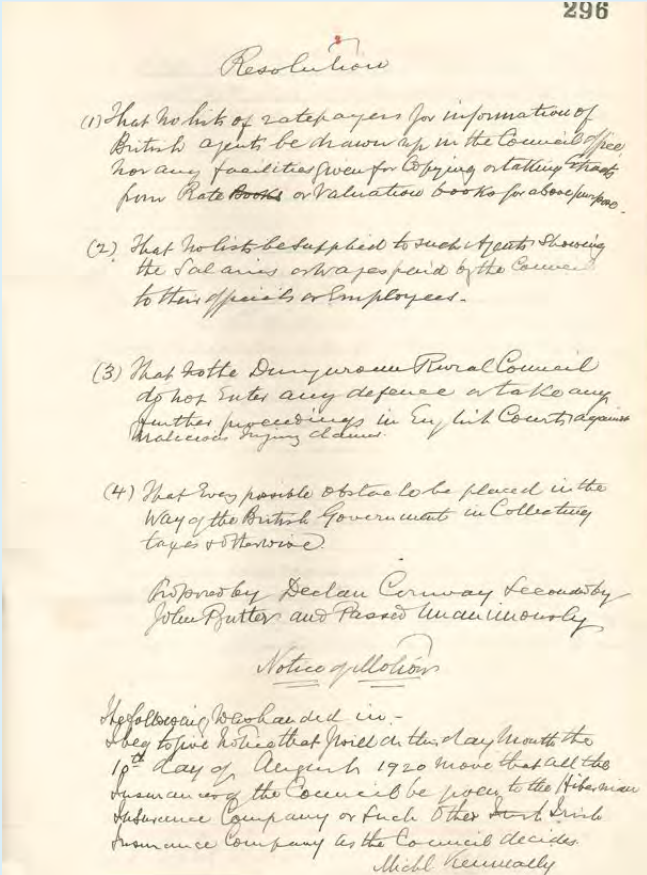 296
Resolution
(1) That no lists of ratepayers for information of
British agents be drawn up in the Council office
nor any facilities given for Copying or taking Extracts
from Rate Books or Valuation books for above purpose.
(2) That no lists be supplied to such Agents Showing
the Salaries or wages paid by the Council
to their officials or Employees.
(3) That the Dungarvan Rural Council
do not Enter any defence or take any
further proceedings in English Courts against
malicious injury claims.
(4) That Every possible obstacle be placed in the
way of the British Government in Collecting
taxes & otherwise.
Proposed by Declan Conway Seconded by
John Butler and Passed Unanimously
Notice of Motion
The following was handed in.-
I beg to give Notice that I will on this day Month the
10th day of August 1920 move that all the
Insurances of the Council be given to the Hibernian
Insurance Company or Such Other Irish Irish
Insurance Company as the Council decides.
Michl Kenneally